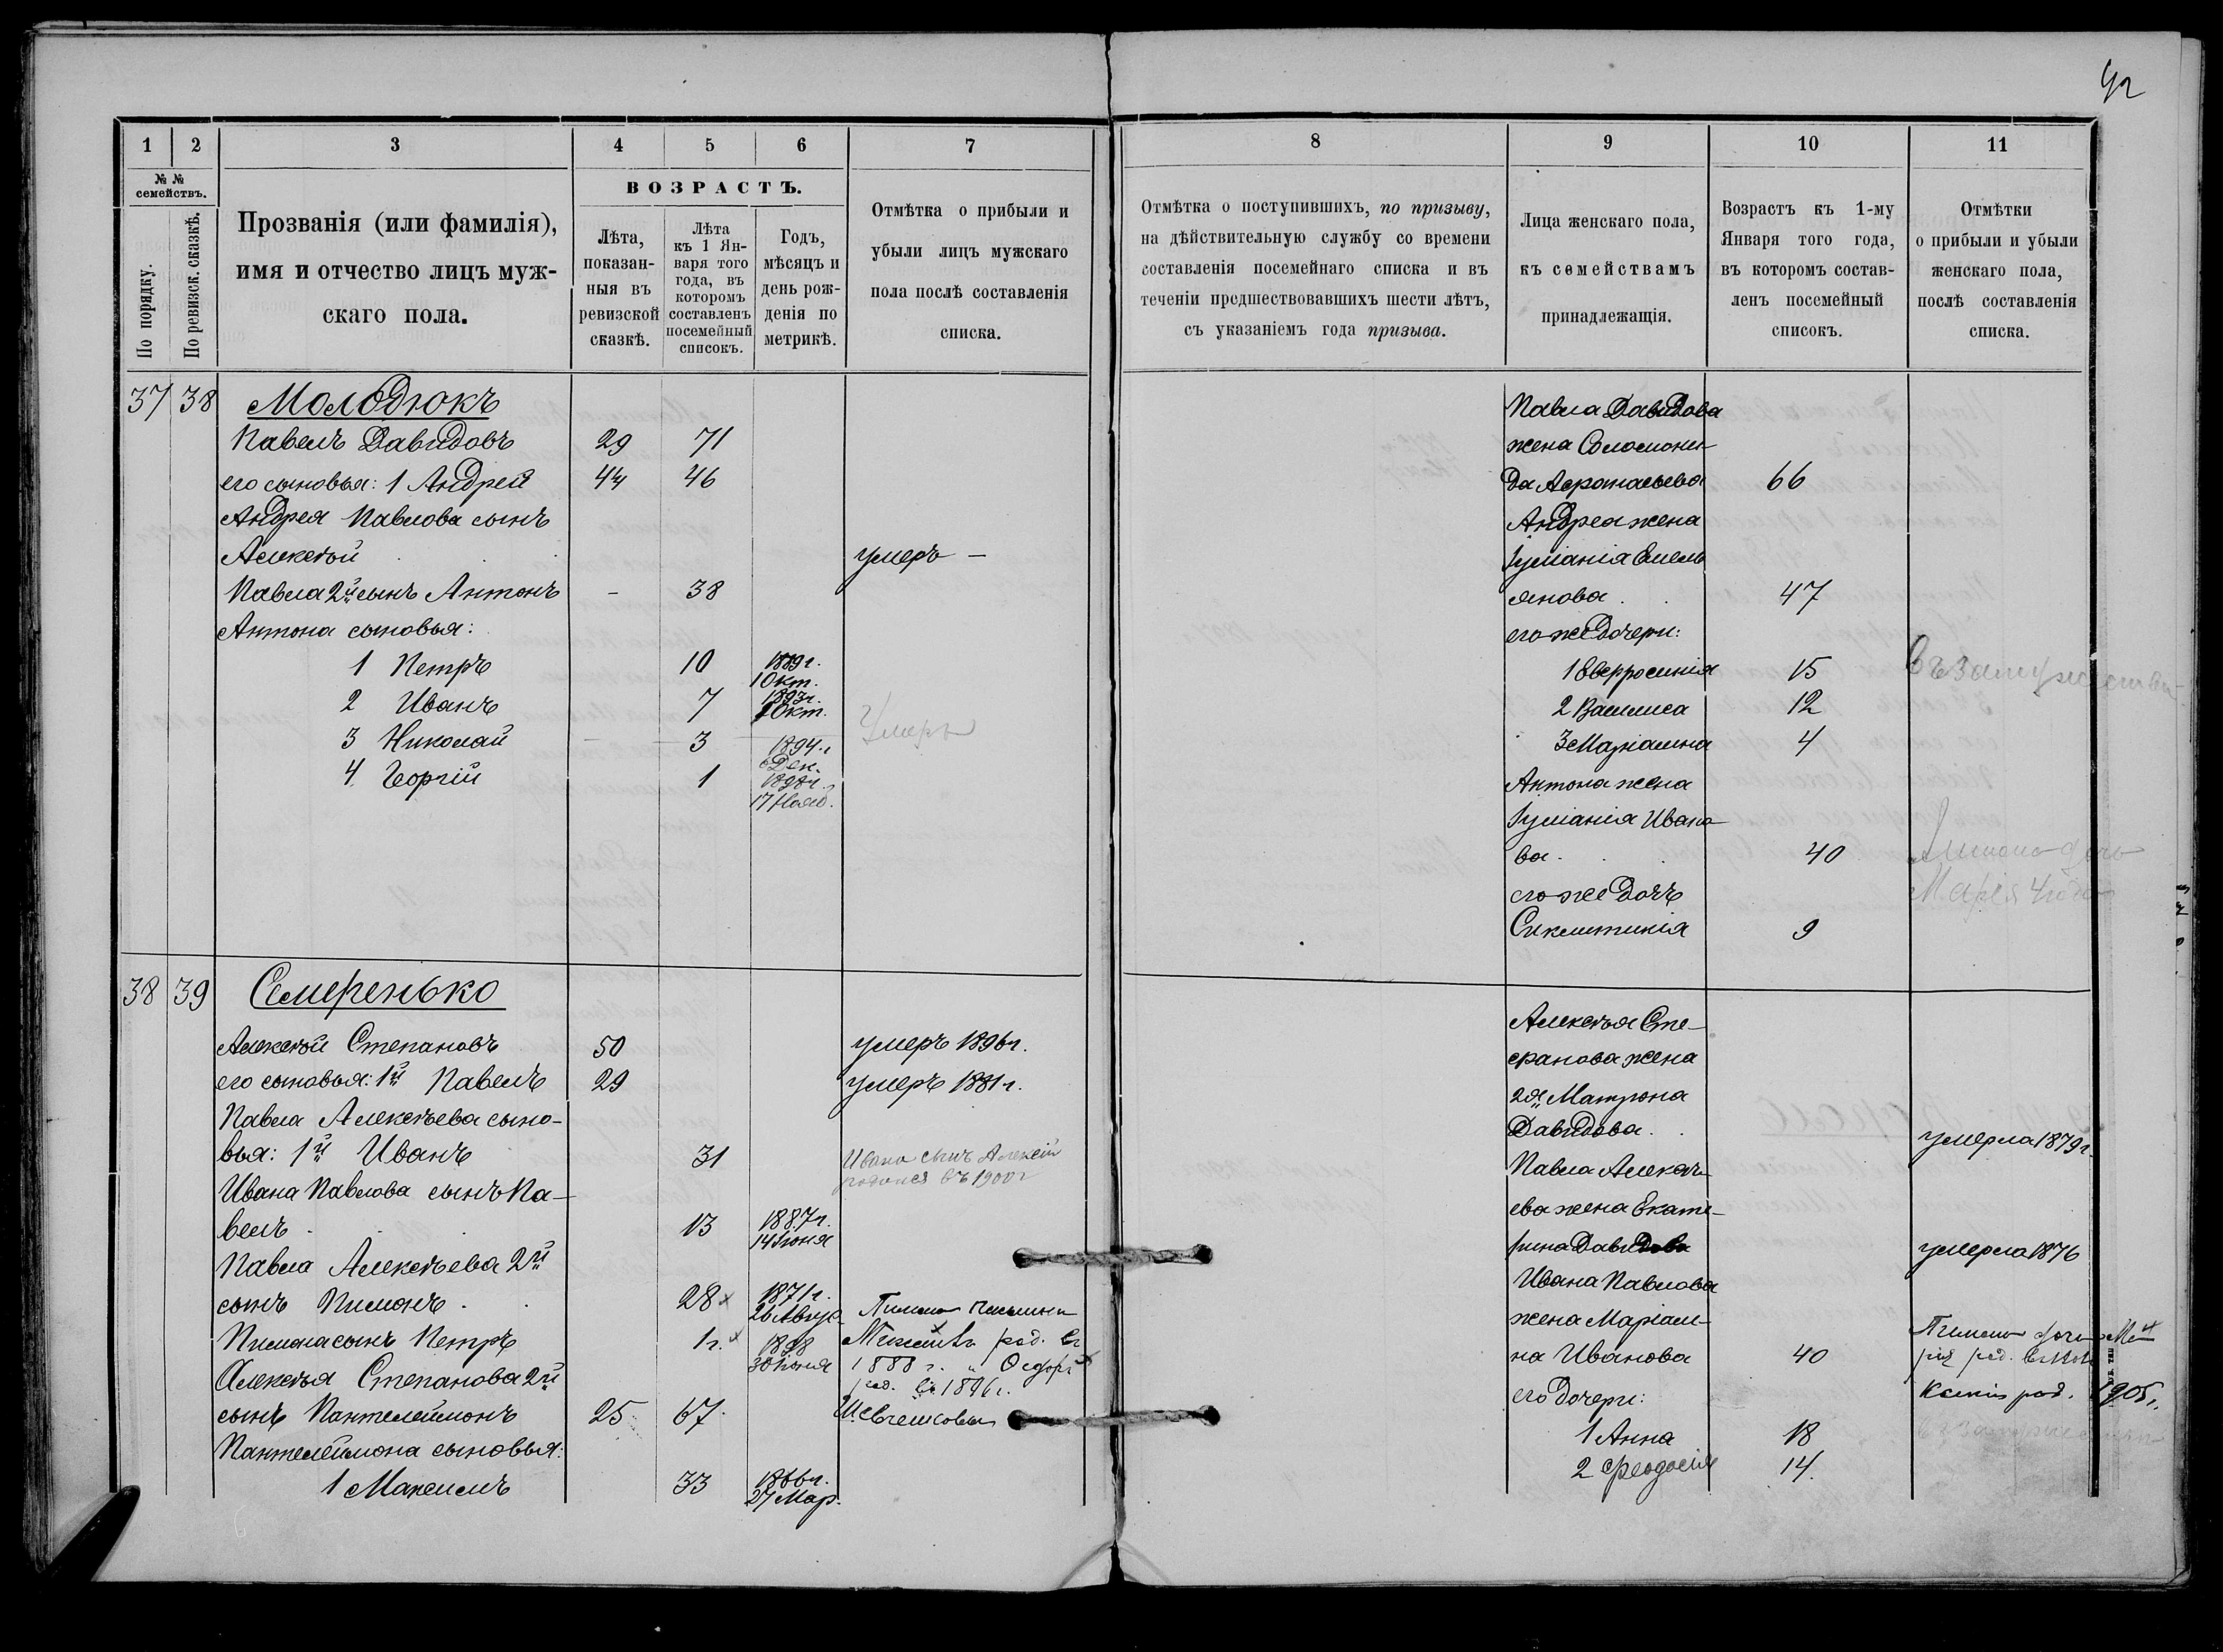 42
1 2 3 4 5 6 7
№ №
семействъ.
По порядку.
По ревизск. сказкѣ.
Прозванія (или фамилія),
имя и отчество лицъ муж-
скаго пола.
ВОЗРАСТЪ.
Лѣта,
показан-
ныя въ
ревизской
сказкѣ.
Лѣта
къ 1 Ян-
варя того
года, въ
которомъ
составленъ
посемейный
списокъ.
Годъ,
мѣсяцъ и
день рож-
денія по
метрикѣ.
Отмѣтка о прибыли и
убыли лицъ мужскаго
пола послѣ составленія
списка.
37 38 Молодюкъ
Павелъ Давидовъ 29 71
его сыновья: 1 Андрей 4 46
Андрея Павлова сынъ
Алексѣй умеръ —
Павла 2й сынъ Антонъ - 38
Антона сыновья:
1 Петръ 10 1889 г.
1 Окт.
2 Иванъ 7 1893 г.
Окт.
3 Николай 3 1894 г. Умеръ
6 Дек.
4 Георгій 1 1898 г.
17 Нояб.
38 39 Семеренько
Алексѣй Степановъ 50 умеръ 1896 г.
его сыновья: 1й Павелъ 29 умеръ 1881 г.
Павла Алексѣева сыно-
вья: 1й Иванъ 31 Ивана сынъ Алексій
родился въ 1900 г
Ивана Павлова сынъ Па-
велъ 13 1887 г.
14 Іюня
Павла Алексѣева 2й
сынъ Пименъ 28 1871 г.
26 Авгус.
Пимена сынъ Петръ 1 г. 1898 род. въ
30 Іюня 1888 г. " Федоръ
род. въ 1896 г.
Алексѣя Степанова 2й
сынъ Пантелеймонъ 25 67
Пантелеймона сыновья:
1 Максимъ 33 1866 г.
27 Мар.
8 9 10 11
Отмѣтка о поступившихъ, по призыву,
на дѣйствительную службу со времени
составленія посемейнаго списка и въ
теченіи предшествовавшихъ шести лѣтъ,
съ указаніемъ года призыва.
Лица женскаго пола,
къ семействамъ
принадлежащія.
Возрастъ къ 1-му
Января того года,
въ которомъ состав-
ленъ посемейный
списокъ.
Отмѣтки
о прибыли и убыли
женскаго пола,
послѣ составленія
списка.
Павла Давидова
жена Соломони-
да Афанасьева 66
Андрея жена
Іуліанія Емель
янова 47
его же дочери:
1 Евфросинія 15 Въ замужествѣ
2 Василиса 12
3 Маріамна 4
Антона жена
Іуліанія Ивано
ва 40 Антона дочь
Марія 4 года
его же дочь
Синклитикія 9
Алексѣя Сте-
панова жена
2я Матрона
Давидова умерла 1879 г.
Павла Алексѣ-
ева жена Екате-
рина Давидова умерла 1876
Ивана Павлова
жена Маріам-
на Иванова 40
Пимена дочь Ма
рія род.
Ксенія род. 1905 г.
его дочери:
1 Анна 18 въ замужествѣ
2 Феодосія 14.